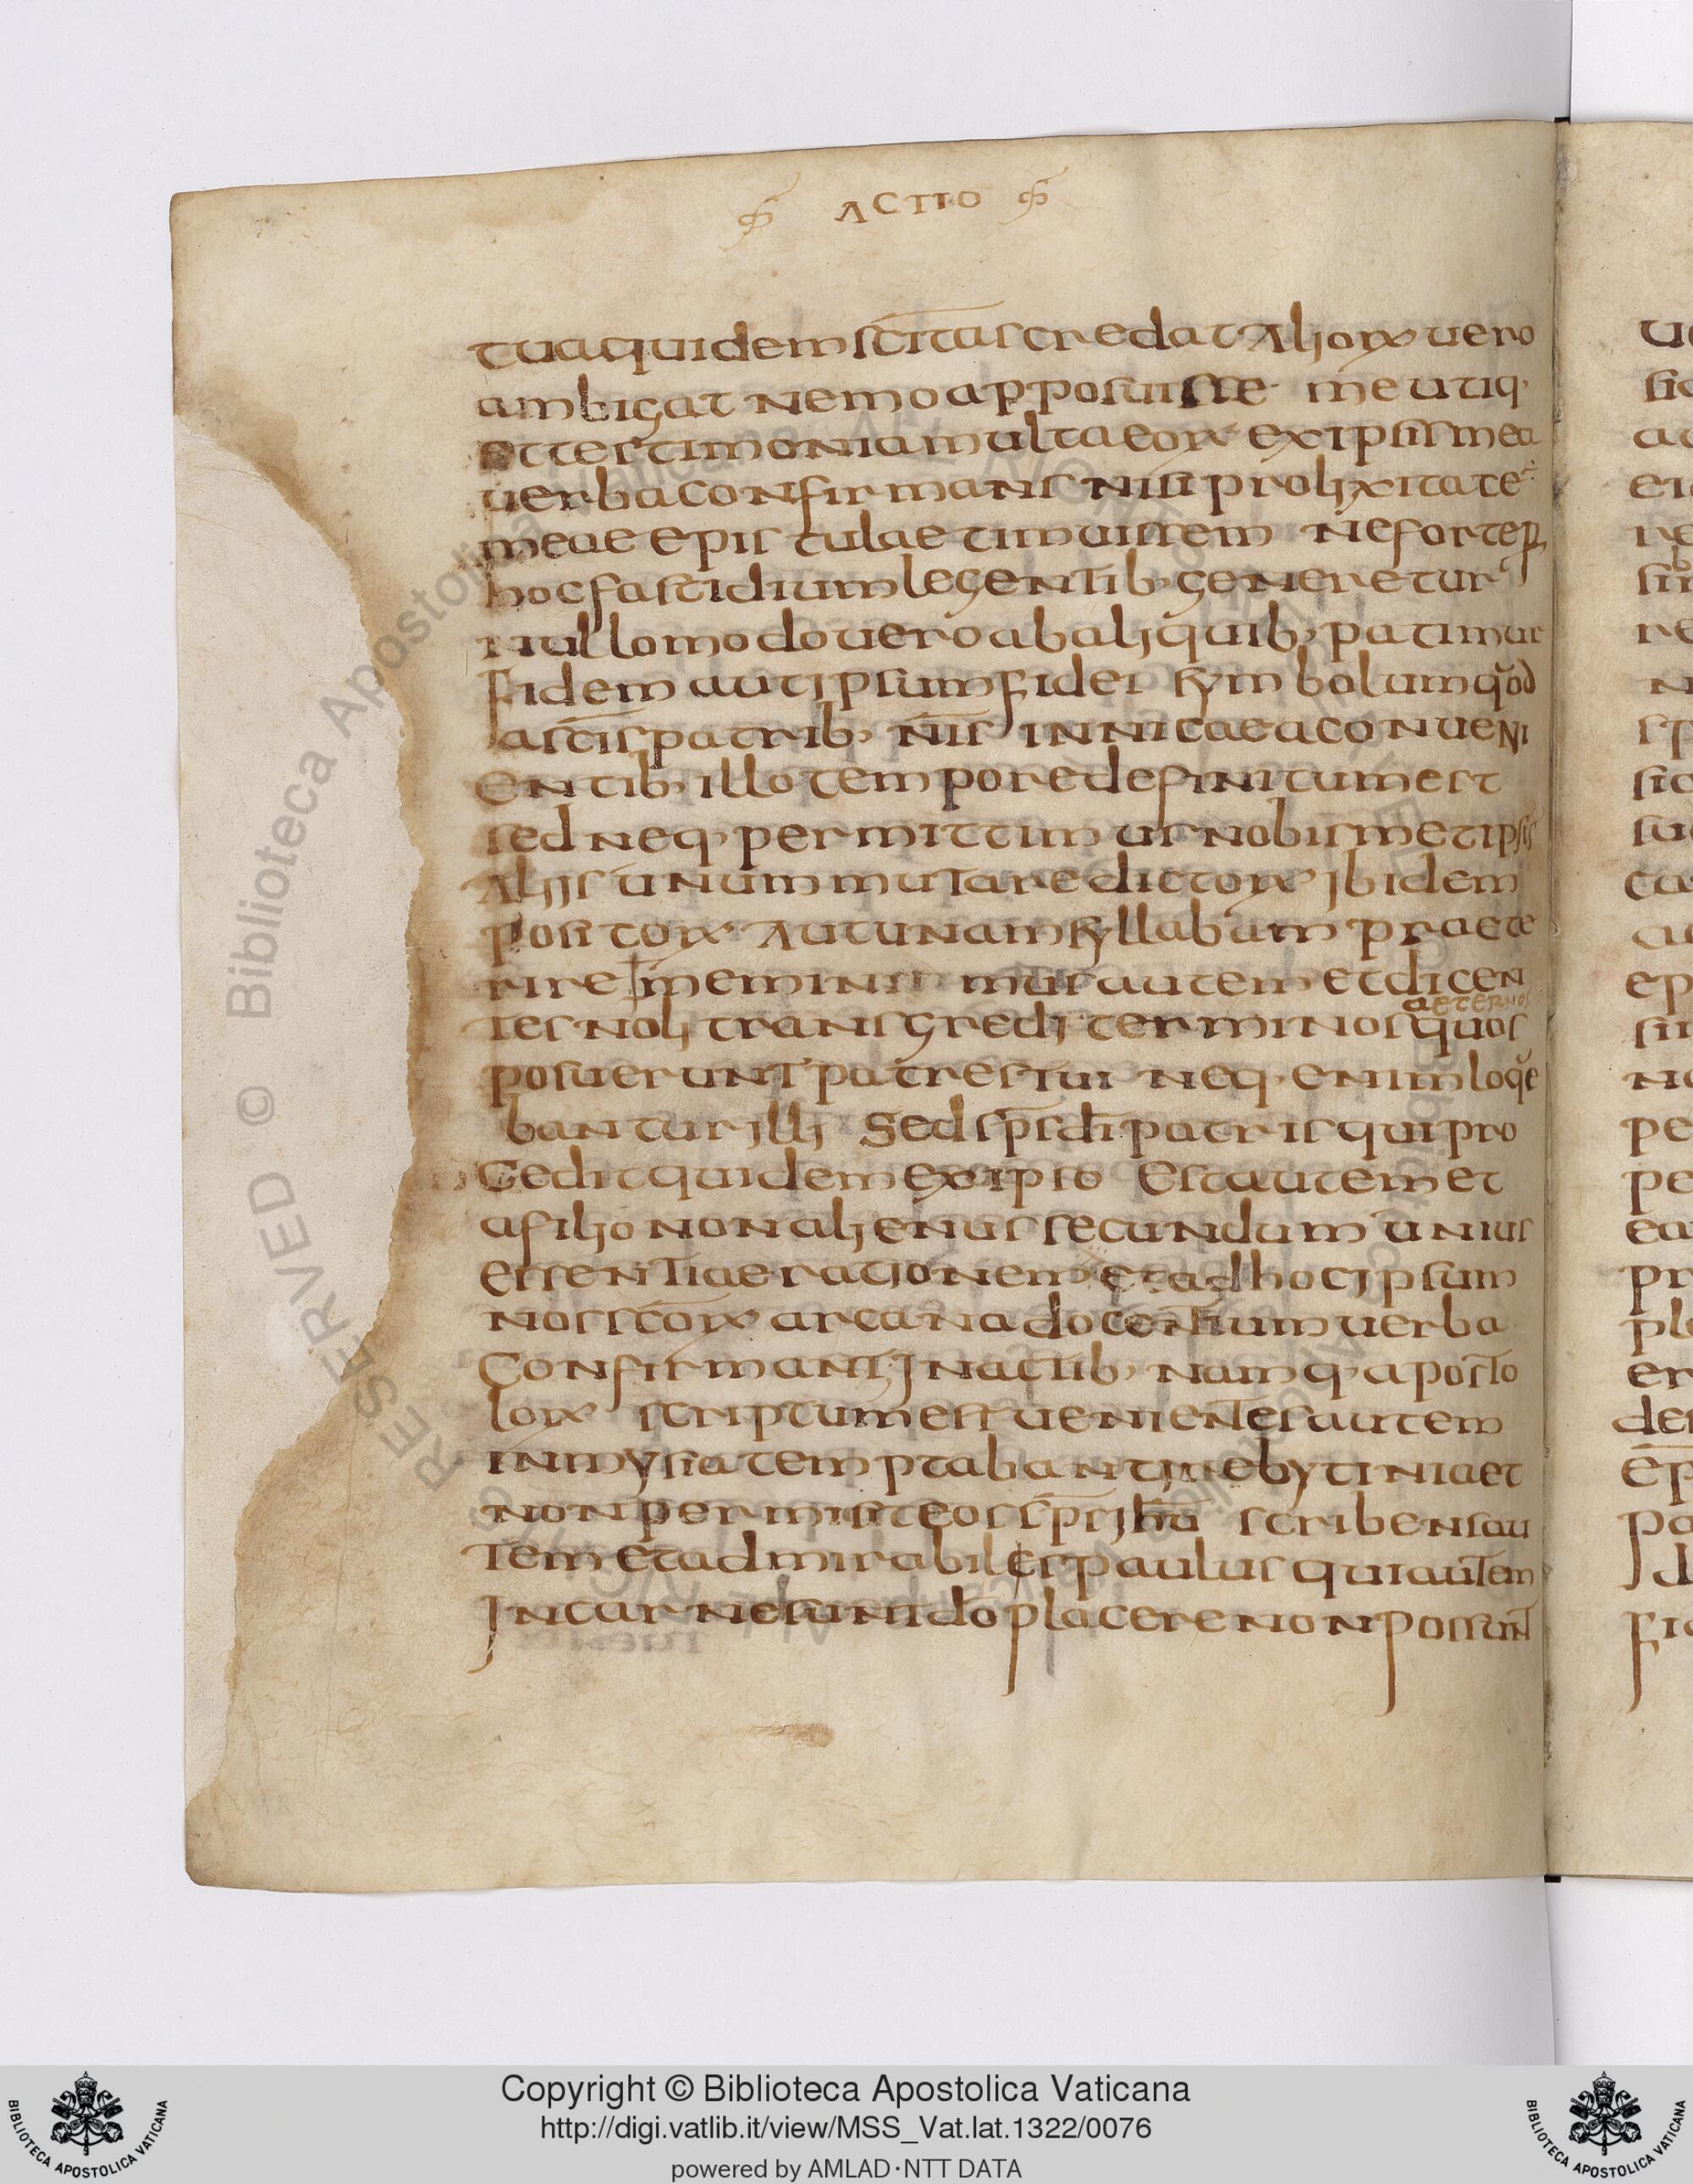 ACTIO
tua quidem scitas credat Aliorum uero
ambigat nemo apposuisse me utiq·
et testimonia multa eorum ex ipsis mea
uerba confirmans nisi prolixitatē
meae epistulae timuissem Ne forte p
hoc fastidium legentib· generetur
Nullo modo uero ab aliquib· patimur
fidem aut ipsum fidei symbolum qŏd
a scīs patrib· nīs in nicaea conueni
entib· illo tempore definitum est
sed neq· permittimus nobismetipsis
Aliis unum mutare dictorum ibidem
positorum Aut unam syllabam praete
rire meminimus autem et dicen
tes Noli transgredi terminos aeternos quos
posuerunt patres tui Neq· enim loqŭe
bantur illi Sed sp̄s dī patris qui pro
cedit quidem ex ipso Est autem et
a filio non alienus secundum unius
essentiae rationem et ad hoc ipsum
nos scōrum arcana docentium uerba
Confirmant In actib· namq· aposto
lorum scriptum est uenientes autem
in mysia temptabant ire bytiniaet
non permisit eos sp̄s ihū scribens au
tem et admirabiles paulus qui autem
In carne sunt do placere non possunt
Copyright © Biblioteca Apostolica Vaticana
http://digi.vatlib.it/view/MSS_Vat.lat.1322/0076
powered by AMLAD·NTT DATA
BIBLIOTECA APOSTOLICA VATICANA
BIBLIOTECA APOSTOLICA VATICANA